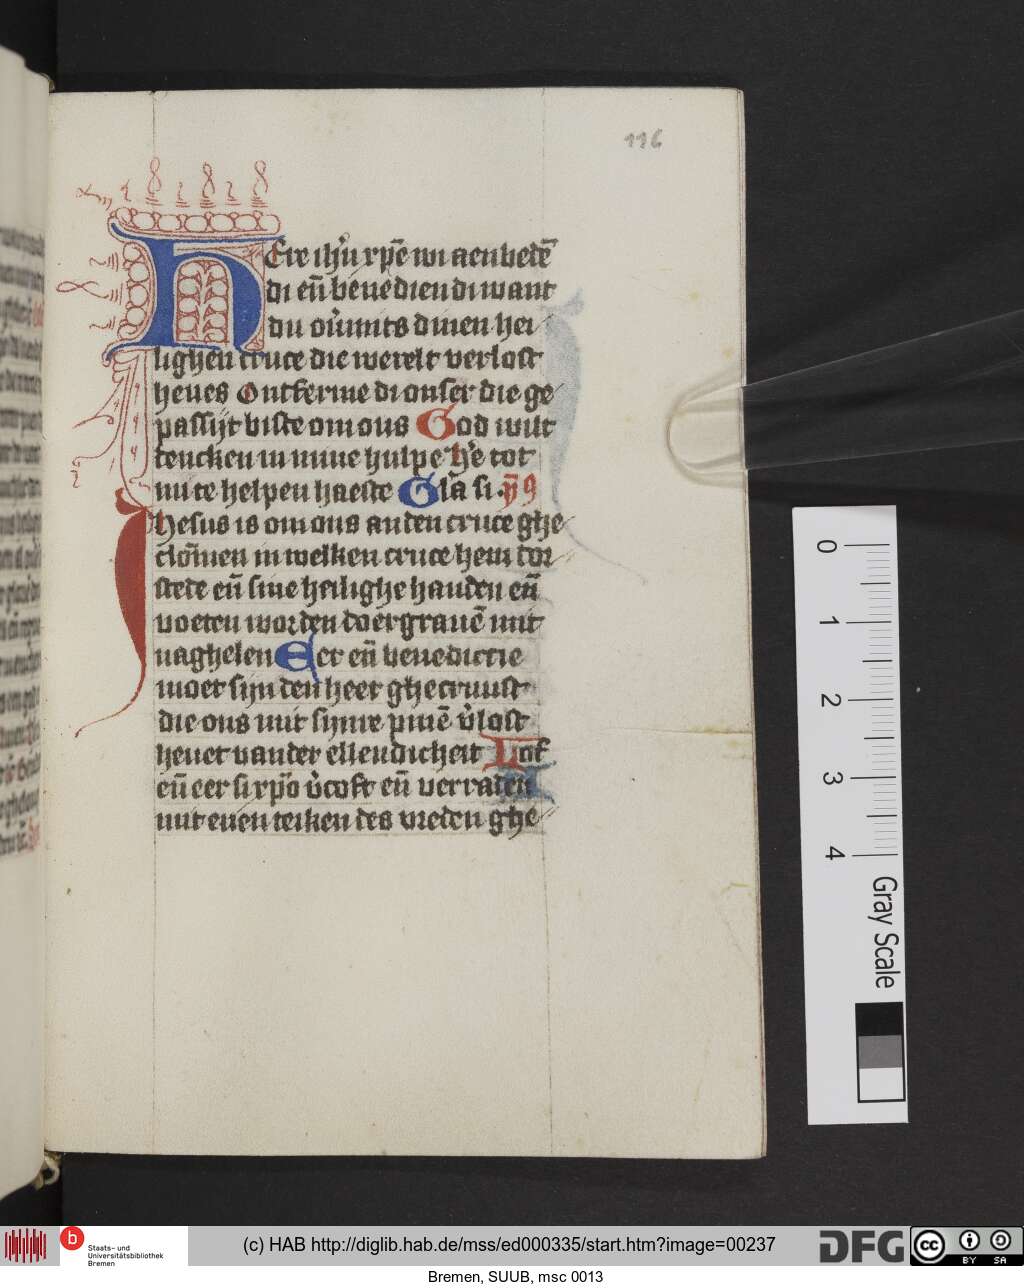 116
HEre ihũ xpē wi aenbetē
di eñ benedien di want
du ou̇mits dinen hei
lighen cruce die werelt verlost
heues Ontferme di onser die ge
passijt biste om ons God wilt
dencken in mine hulpe he tot
mi te helpen haeste Gl̃a si. ym̃9
Ihesus is om ons an den cruce ghe
clōmen in welken cruce hem dor
stede eñ sine heilighe handen eñ
voeten worden doergrauē mit
naghelen Eer eñ benedictie
moet sijn den heer ghecruust
die ons mit sijnre pinē v̇lost
heuet van der ellendicheit Lof
eñ eer si xpō v̇coft eñ verraden
mit enen teiken des vreden ghe
0
1
2
3
4
Gray Scale
b
Staats- und
Universitätsbibliothek
Bremen
(c) HAB http://diglib.hab.de/mss/ed000335/start.htm?image=00237
DFG
cc
BY SA
Bremen, SUUB, msc 0013